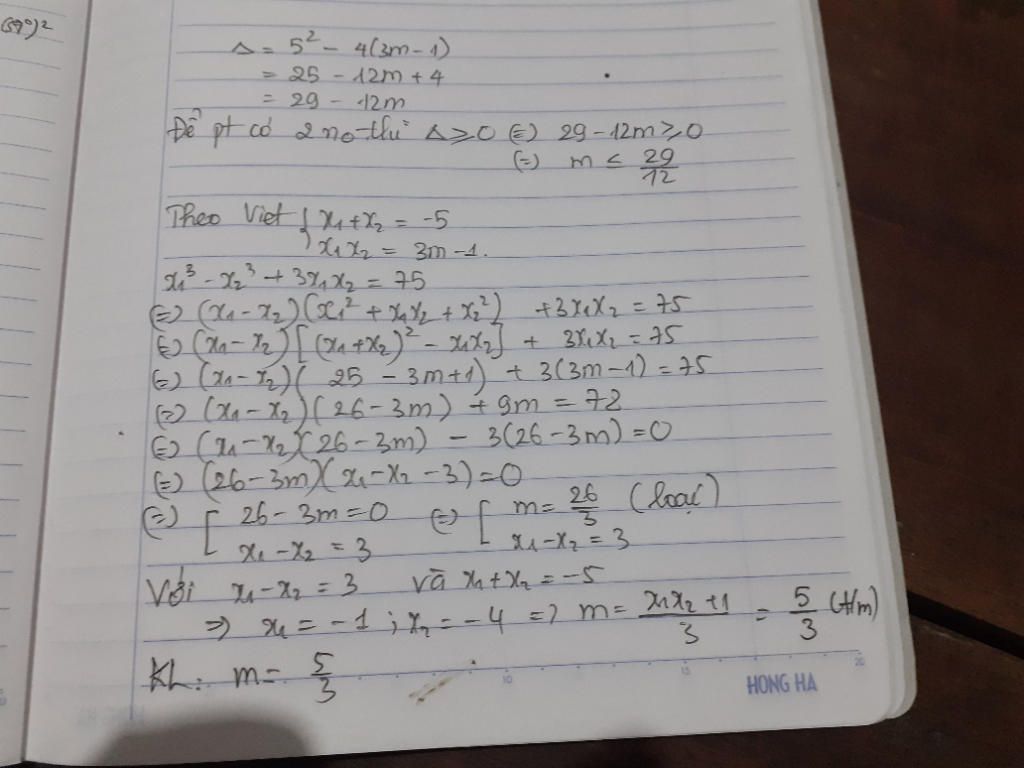 (59°)²
Δ = 5² - 4(3m-1)
= 25 - 12m + 4
= 29 - 12m
Để pt có 2 n₀ thì Δ ≥ 0 (=) 29-12m ≥ 0
(=) m ≤ 29/12
Theo Viet { x₁+x₂ = -5
x₁x₂ = 3m-1.
x₁³ - x₂³ + 3x₁x₂ = 75
(=) (x₁-x₂)(x₁² + x₁x₂ + x₂²) + 3x₁x₂ = 75
(=) (x₁-x₂)[(x₁+x₂)² - x₁x₂] + 3x₁x₂ = 75
(=) (x₁-x₂)(25 - 3m+1) + 3(3m-1) = 75
(=) (x₁-x₂)(26-3m) + 9m = 78
(=) (x₁-x₂)(26-3m) - 3(26-3m) = 0
(=) (26-3m)(x₁-x₂-3) = 0
(=) [ 26-3m = 0 (=) [ m = 26/3 (loại)
x₁-x₂ = 3 x₁-x₂ = 3
Với x₁-x₂ = 3 và x₁+x₂ = -5
=> x₁ = -1 ; x₂ = -4 => m = (x₁x₂+1)/3 = 5/3 (t/m)
KL: m = 5/3
10 15 20
HONG HA